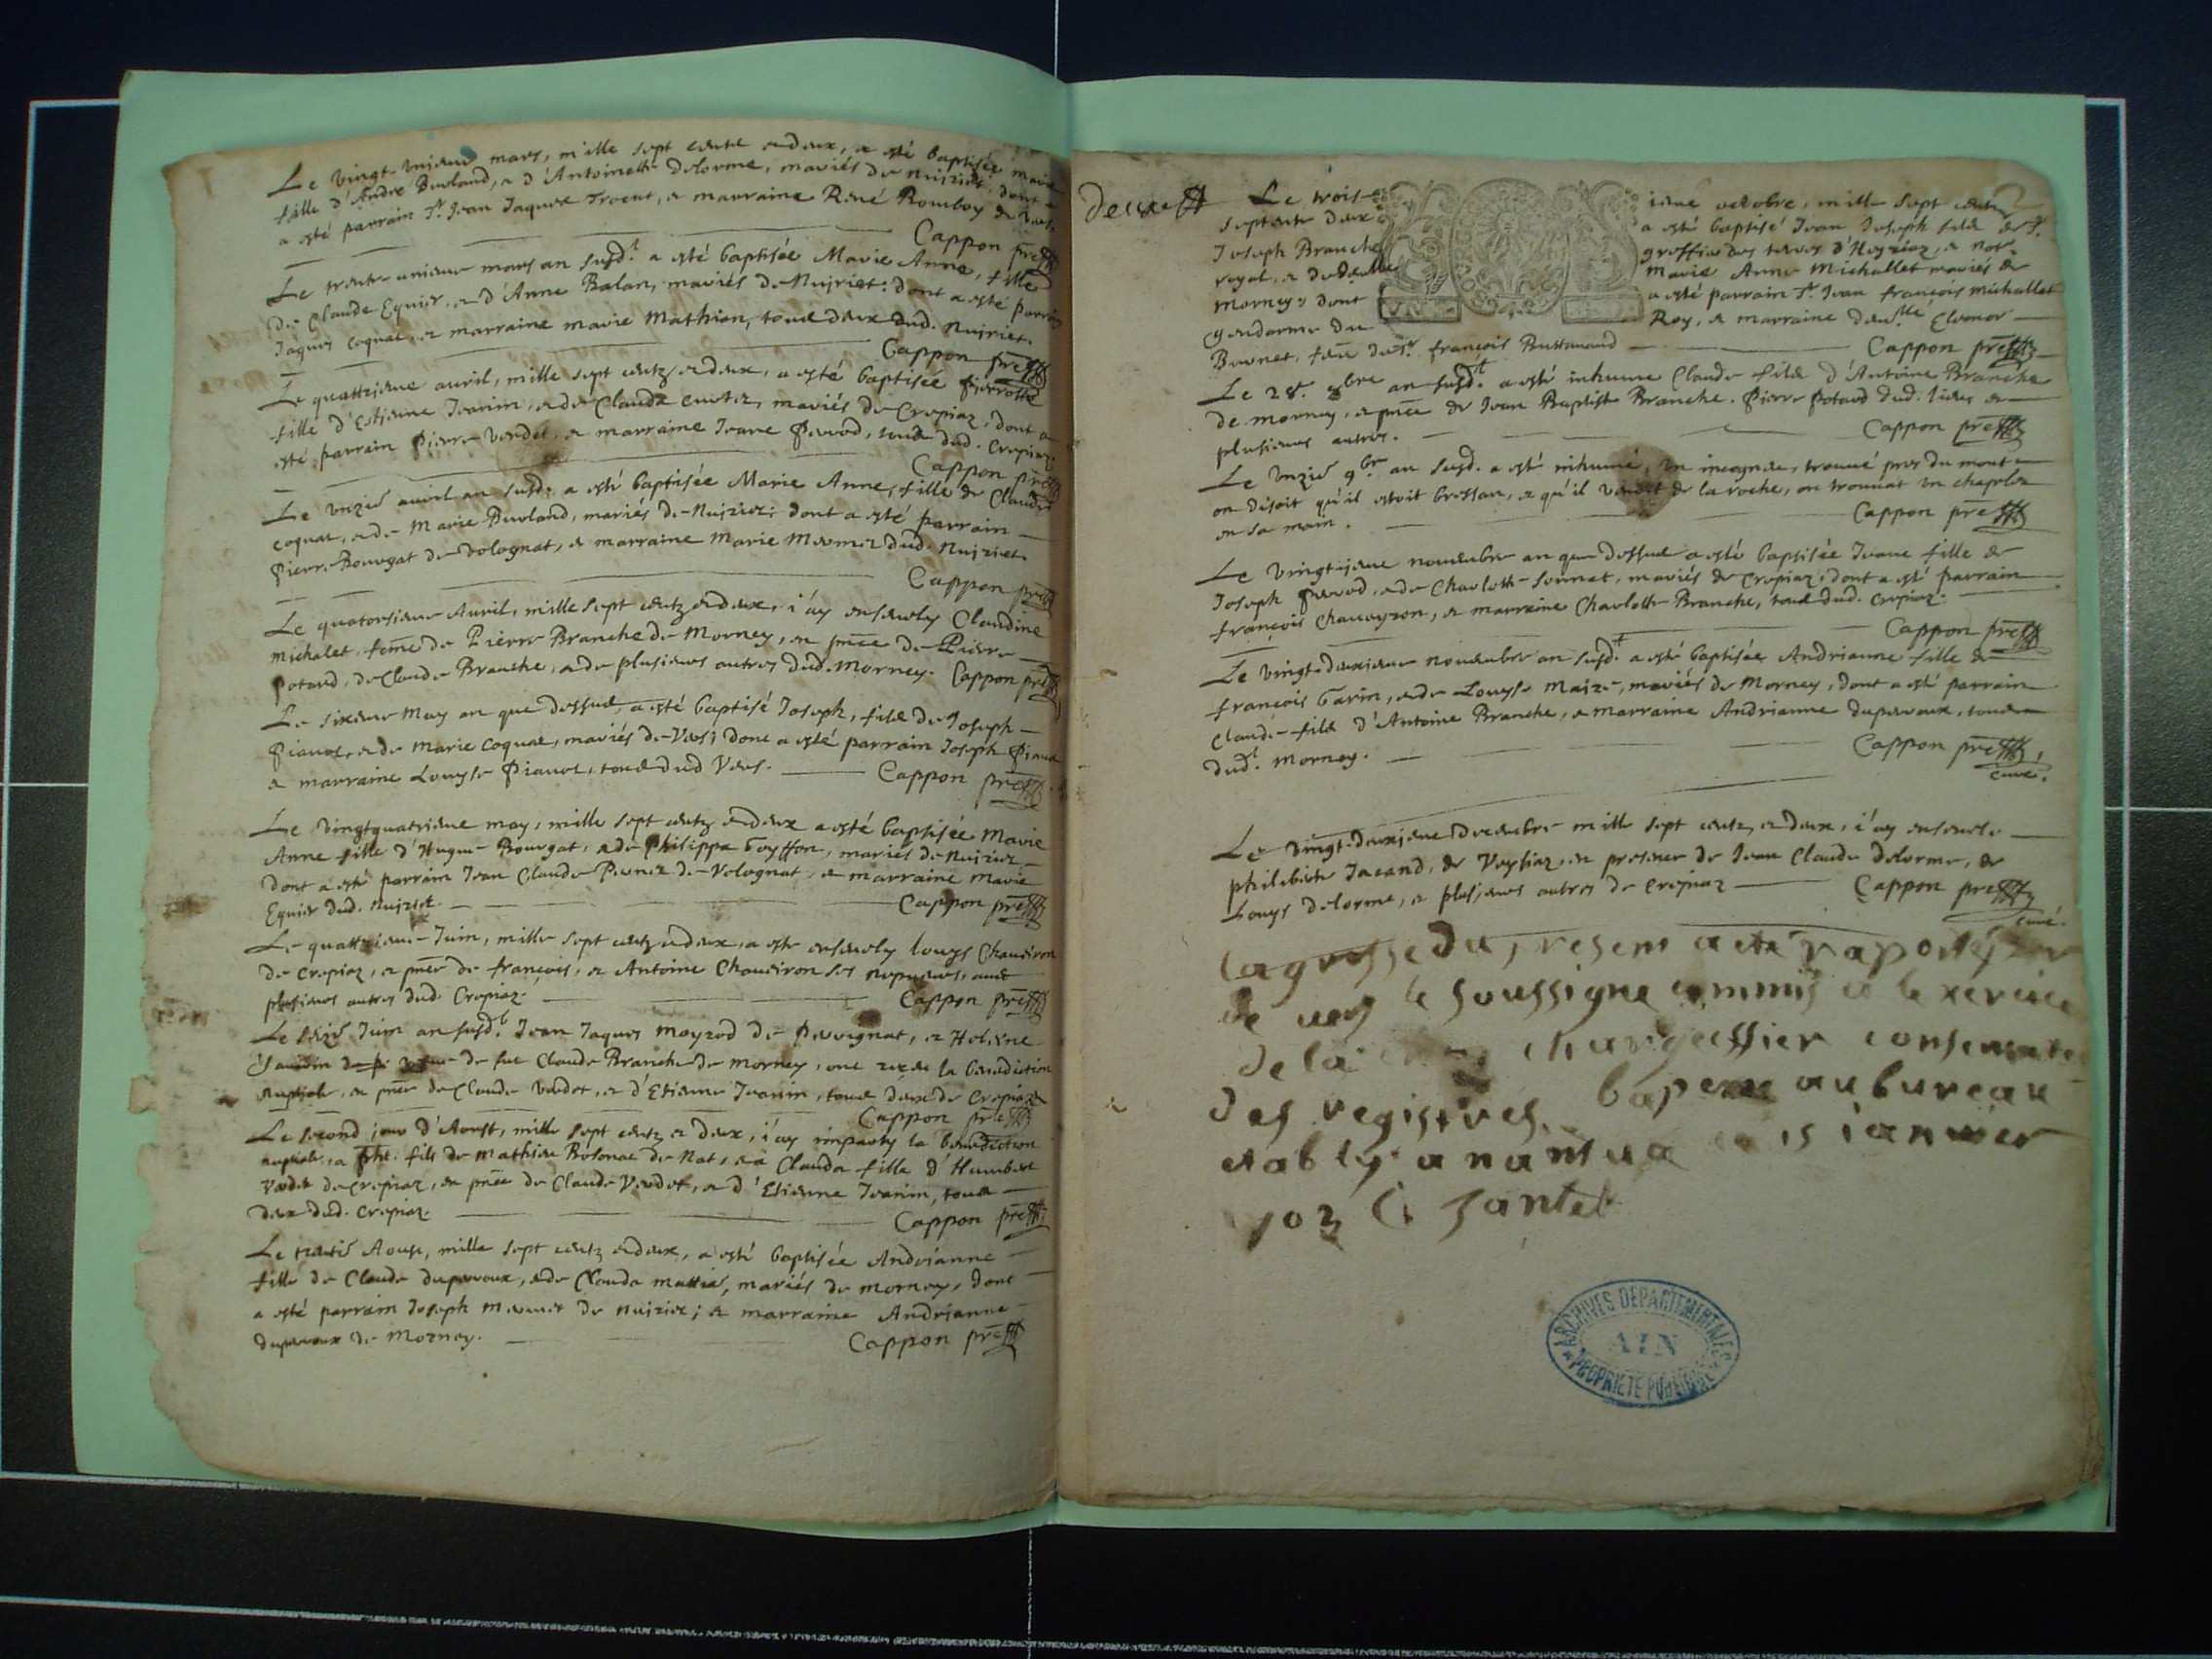 Le vingt-unieme mars, mille sept cents et deux, a esté baptisée marie
fille d'André Burland, et d'Antoinette Delorme, mariés de Nuiriet, dont
a esté parrain Sr. Jean Jaques Trocut, et marraine René Romboy de
Cappon pre
Le trente-unieme mars an susdt. a esté baptisée Marie Anne, fille
de Claude Equier, et d'Anne Balan, mariés de Nuiriet; dont a esté parrain
Jaques coquat, et marraine marie Mathion, tous deux dud. Nuiriet.
Cappon pre
Le quattrieme avril, mille sept centz et deux, a esté baptisée Pierrotte
fille d'Estienne Jeanin, et de Claudaz mariés de Crepiaz, dont a
esté parrain Pierre Verdet, et marraine Jeane Perrod, tous dud. Crepiaz.
Cappon pre
Le unzie avril an susd. a esté baptisée Marie Anne, fille de Claude
coquat, et de Marie Burland, mariés de Nuiriet; dont a esté parrain
Pierre Bourgat de Volognat, et marraine Marie Mermet dud. Nuiriet.
Cappon pre
Le quatorsieme Avril, mille sept centz et deux, i'ay ensevely Claudine
Michalet feme de Pierre Branche de Morney, en pnce de Pierre
Potard, de Claude Branche, et de plusieurs autres dud. Morney. Cappon pre
Le sixieme May an que dessus, a esté baptisé Joseph, fils de Joseph
Pianet, et de Marie Coquat, mariés de Vers; dont a esté parrain Joseph Pianet
et marraine Louyse Pianet, tous dud Vers. Cappon pre
Le vingtquatrieme may, mille sept centz et deux a esté baptisée Marie
Anne fille d'Hugue Bourgat, et de Philippa Goyffon, mariés de Nuiriet
dont a esté parrain Jean Claude Pernet de Volognat, et marraine Marie
Equier dud. Nuiriet. Cappon pre
Le quattrieme Juin, mille sept centz et deux, a esté ensevely Louys Chaveiron
de Crepiaz, en pnce de françois, et Antoine Chaveiron ses nepveus, avec
plusieurs autres dud. Crepiaz. Cappon pre
Le seizie Juin an susdt. Jean Jaques Mayrod de Peroignat, et Heleine
Jandin veuve de feu Claude Branche de Morney, ont receu la benediction
nuptiale, en pnce de Claude Verdet, et d'Etienne Jeanin, tous deux de Crepiaz
Cappon pre
Le second jour d'Aoust, mille sept centz et deux, i'ay imparty la benediction
nuptiale, a fils de Mathieu Bosonat de Nat, et a Clauda fille d'Humbert
Verdet de Crepiaz, en pnce de Claude Verdet, et d'Etienne Jeanin, tous
deux dud. Crepiaz. Cappon pre
Le Aoust, mille sept centz et deux, a esté baptisée Andrianne
fille de Claude duperroux, et de Clauda mattie, mariés de morney, dont
a esté parrain Joseph Mermet de Nuiriet; et marraine Andrianne
duperroux de Morney. Cappon pre
2
deuxe
Le troisieme octobre, mille sept centz
septante deux a esté baptisé Jean Joseph fils de Sr.
Joseph Branche greffier des terres d'Heyriaz, et notre
royal, et de Marie Anne Michallet mariés de
Morney; dont a esté parrain Sr. Jean françois Michallet
gendarme du Roy, et marraine demlle Eleonor
Bournet, feme du Sr. françois Buttavand Cappon pre
Le 28e. 8bre an susdt. a esté inhumé Claude fils d'Antoine Branche
de morney, en pnce de Jean Baptiste Branche. Pierre Potard dud. lieu, et
plusieurs autres. Cappon pre
Le unzie 9bre an susd. a esté inhumé, un incognu, trouvé pres du mont
on disoit qu'il estoit bressan, et qu'il venoit de la roche, on trouvat un chapelet
en sa main. Cappon pre
Le vingtieme novembre an que dessus a esté baptisée Jeane fille de
Joseph Perrod, et de Charlotte Sonnat, mariés de Crepiaz; dont a esté parrain
françois Chaveyron, et marraine Charlotte Branche, tous dud. Crepiaz.
Cappon pre
Le vingt-deuxieme novembre an susdt. a esté baptisée Andrianne fille de
françois Garin, et de Louyse Maize, mariés de Morney, dont a esté parrain
Claude fils d'Antoine Branche, et marraine Andrianne duperroux, tous
dudt. Morney. Cappon pre
curé.
Le vingt-deuxieme decembre mille sept centz et deux, i'ay enseveli
philiberte Jacand, de Veysiaz, en presence de Jean Claude Delorme, de
Louys Delorme, et plusieurs autres de Crepiaz Cappon pre
curé.
la grosse du present a esté raportée par
de moy le soussigne commis a lexercice
de la charge greffier conservateur
des registres bapemes au bureau
etably a nantua ce 15 ianvier
1703
ARCHIVES DEPARTEMENTALES
AIN
PROPRIETE PUBLIQUE